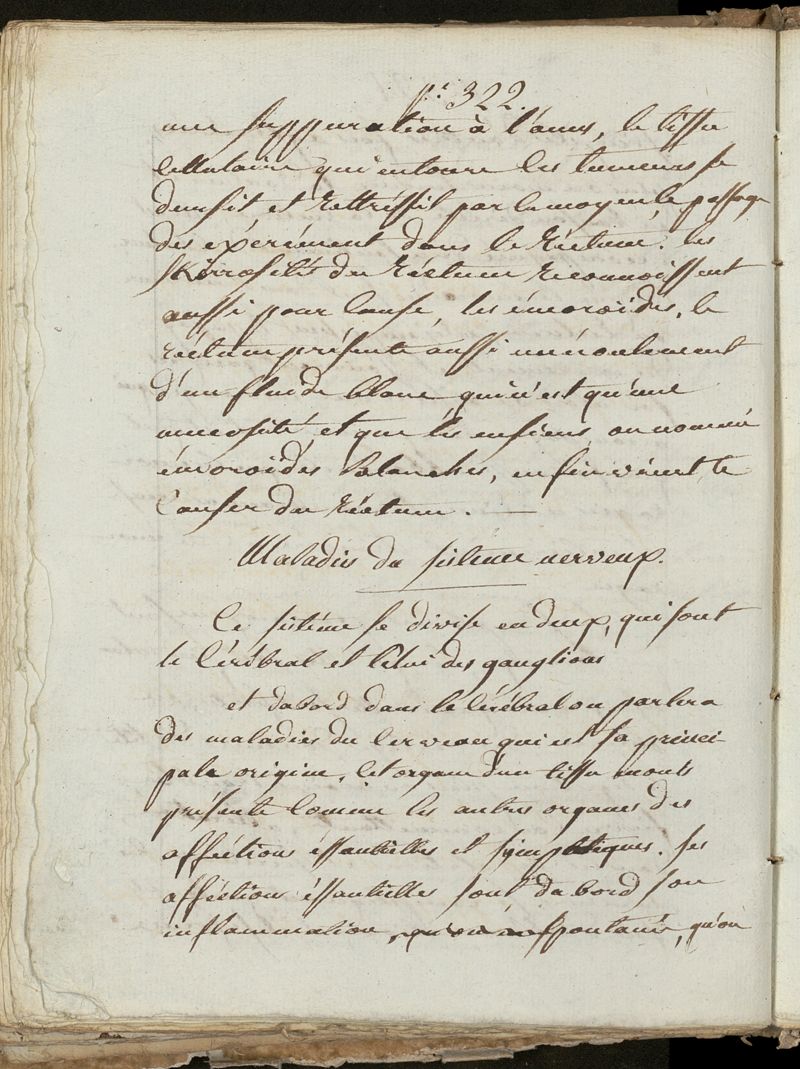 p.e 322.
une suppuration à l'anus, le tissu
cellulaire qui entoure les tumeurs se
densit et rettréssit par le moyen le passage
des éxérément dans le réctum. les
skirrosités du réctum reconnoissent
aussi pour cause, les émoroïdes, le
réctum présente aussi un écoulement
d'un fluide blanc qui n'est qu'une
mucosité, et que les enciens on nommé
émoroides blanches, enfin vient le
canser du réctum. —
Maladies du sisteme nerveux.
Ce sistéme se divise en deux, qui sont
le Cérébral et Celui des ganglions
et dabord dans le Cérébral on parlera
des maladies du Cerveau qui est sa princi
pale origine. Cet organe d'un tissu mous
présente Comme les autres organes des
afféctions éssantielles et symptiques. ses
afféctions éssantielles sont dabord son
inflammation, spontanée, qu'on